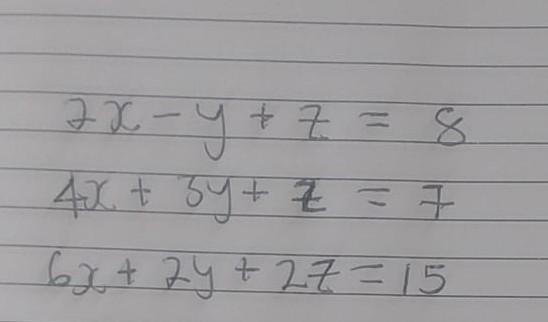 2x - y + z = 8
4x + 3y + z = 7
6x + 2y + 2z = 15